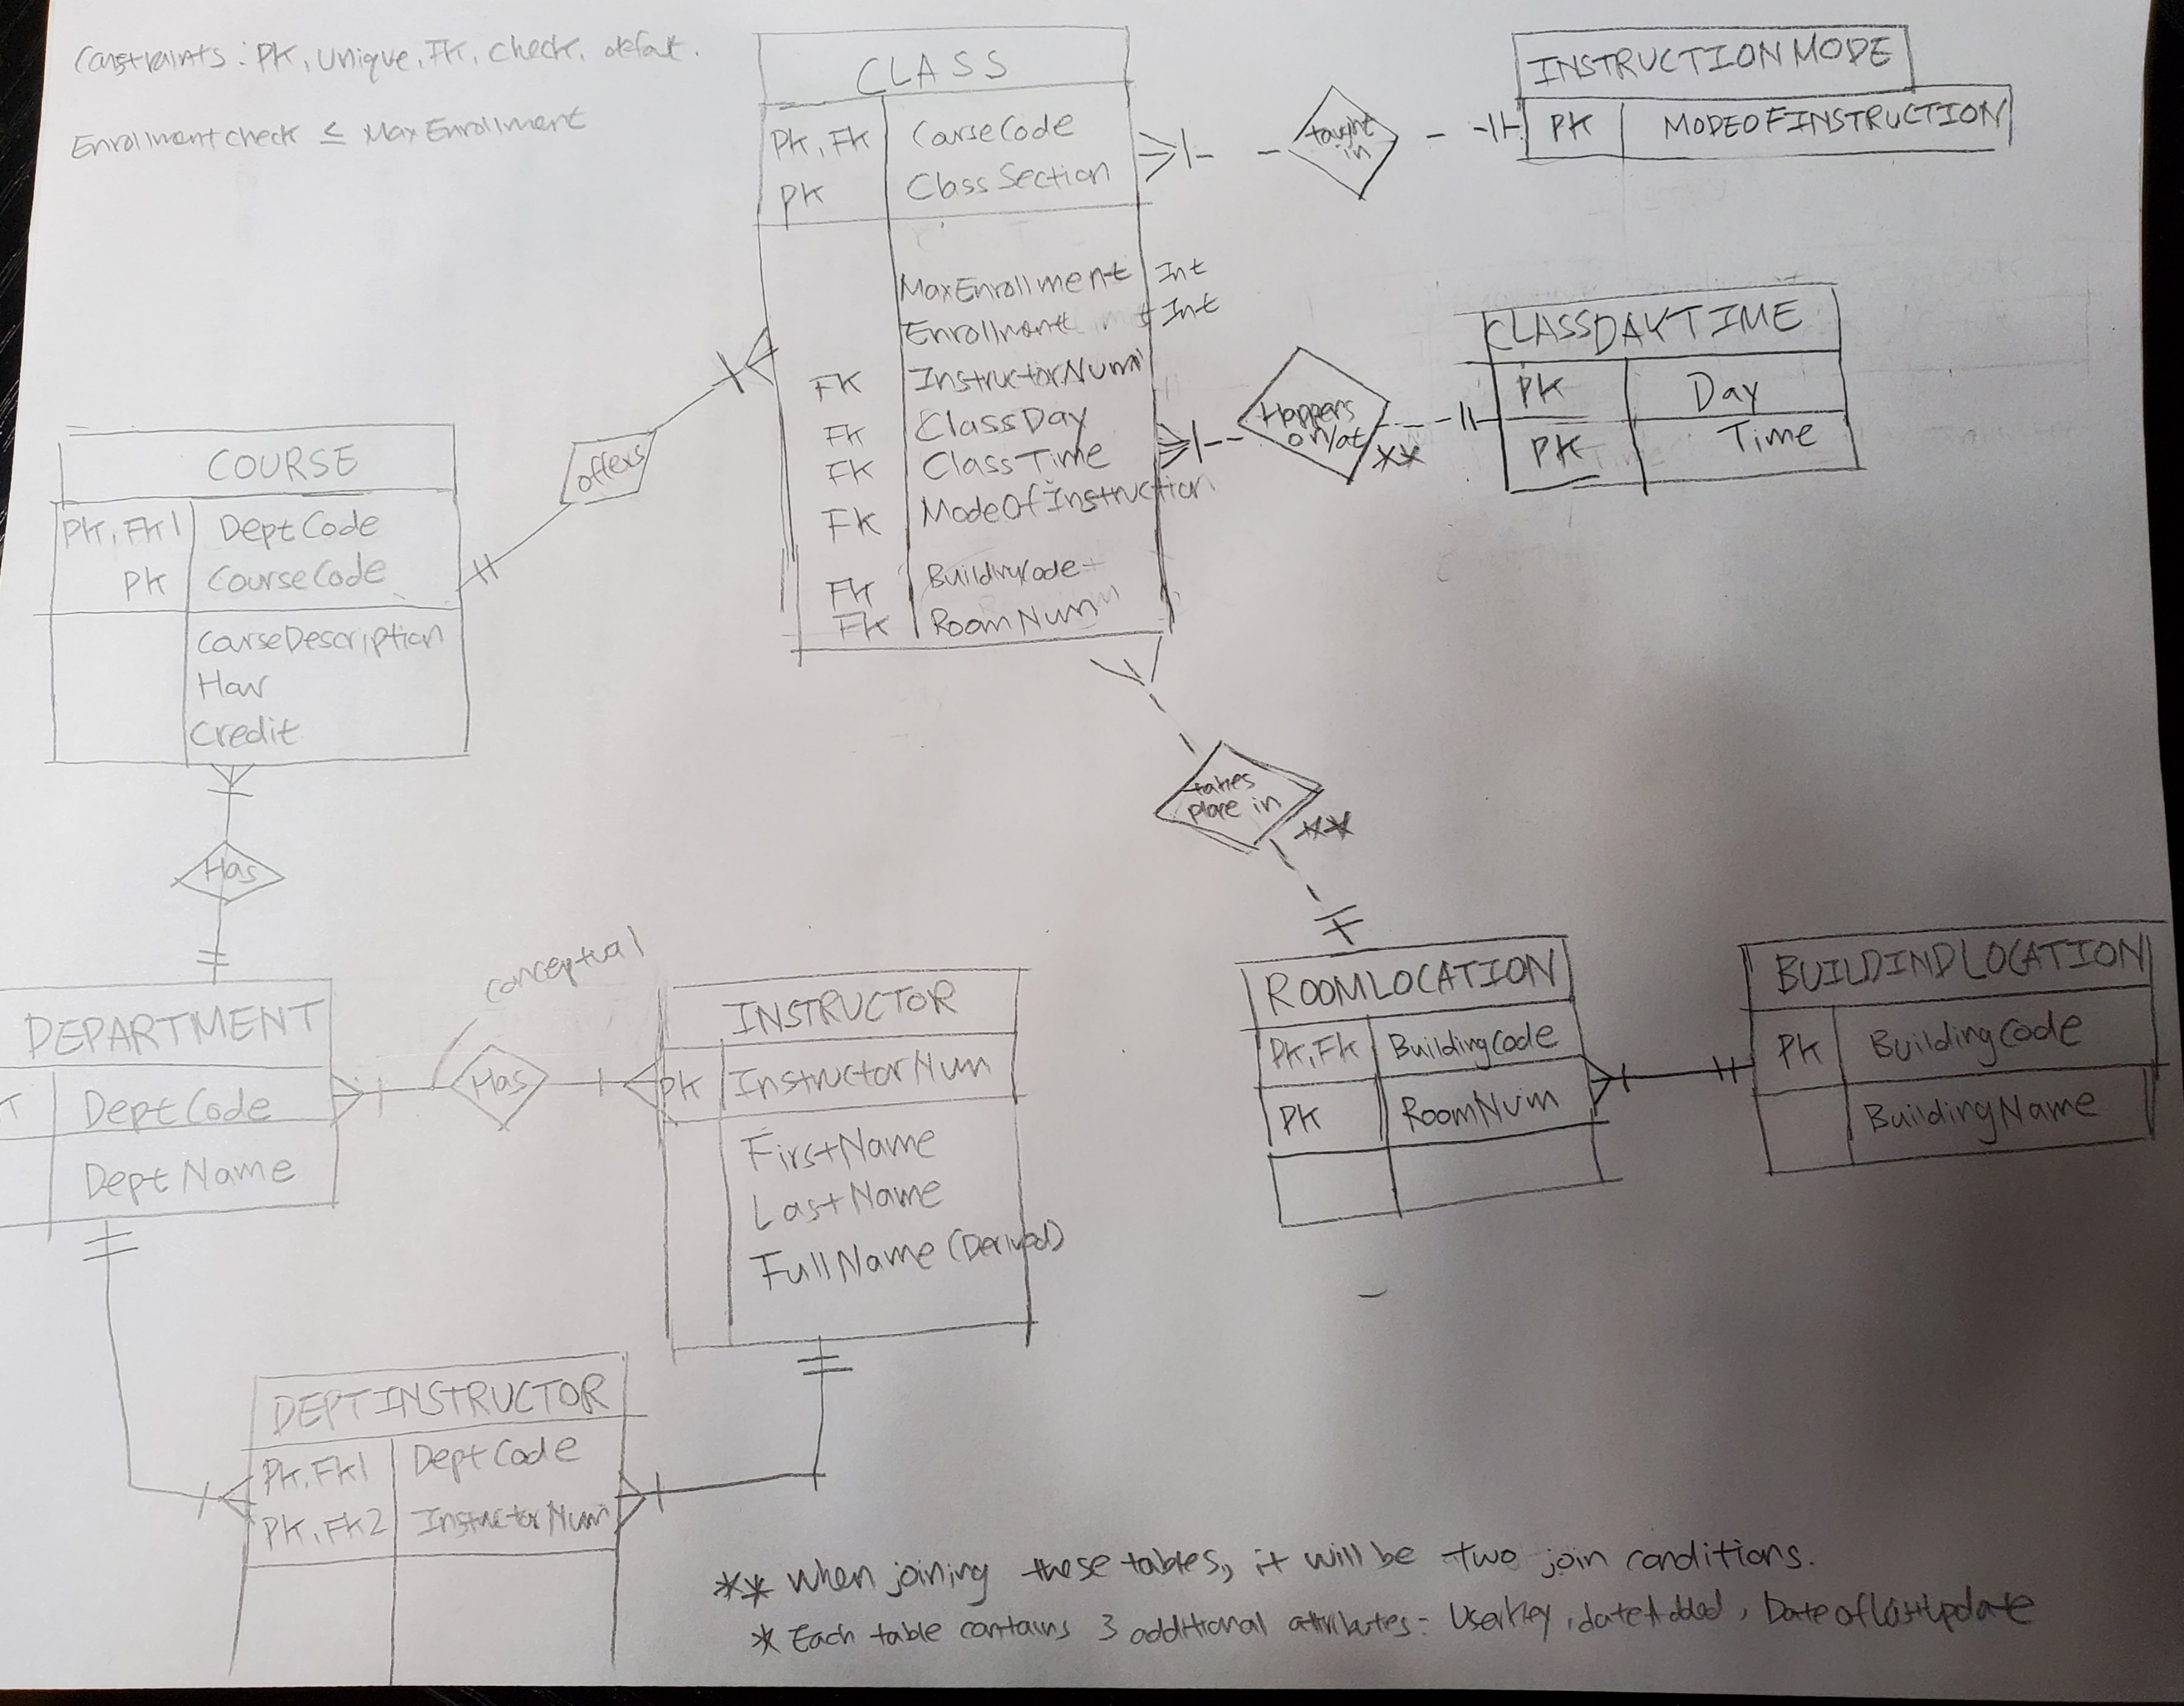 Constraints: PK, Unique, FK, Check, defalt.
Enrollment check ≤ Max Enrollment
CLASS
PK, FK CourseCode
PK Class Section
MaxEnrollment Int
Enrollment Int
FK InstructorNum
FK ClassDay
FK ClassTime
FK ModeOfInstruction
FK BuildingCode
FK RoomNum
taught in
INSTRUCTIONMODE
PK MODEOFINSTRUCTION
Happens on/at
**
CLASSDAYTIME
PK Day
PK Time
offers
COURSE
PK, FK1 DeptCode
PK CourseCode
CourseDescription
Hour
Credit
Has
takes place in
**
DEPARTMENT
DeptCode
DeptName
conceptual
Has
INSTRUCTOR
PK InstructorNum
FirstName
LastName
FullName (Derived)
ROOMLOCATION
PK, FK BuildingCode
PK RoomNum
BUILDINDLOCATION
PK BuildingCode
BuildingName
DEPTINSTRUCTOR
PK, FK1 DeptCode
PK, FK2 InstructorNum
** when joining these tables, it will be two join conditions.
* Each table contains 3 additional attributes - UserKey, dateAdded, DateofLastUpdate